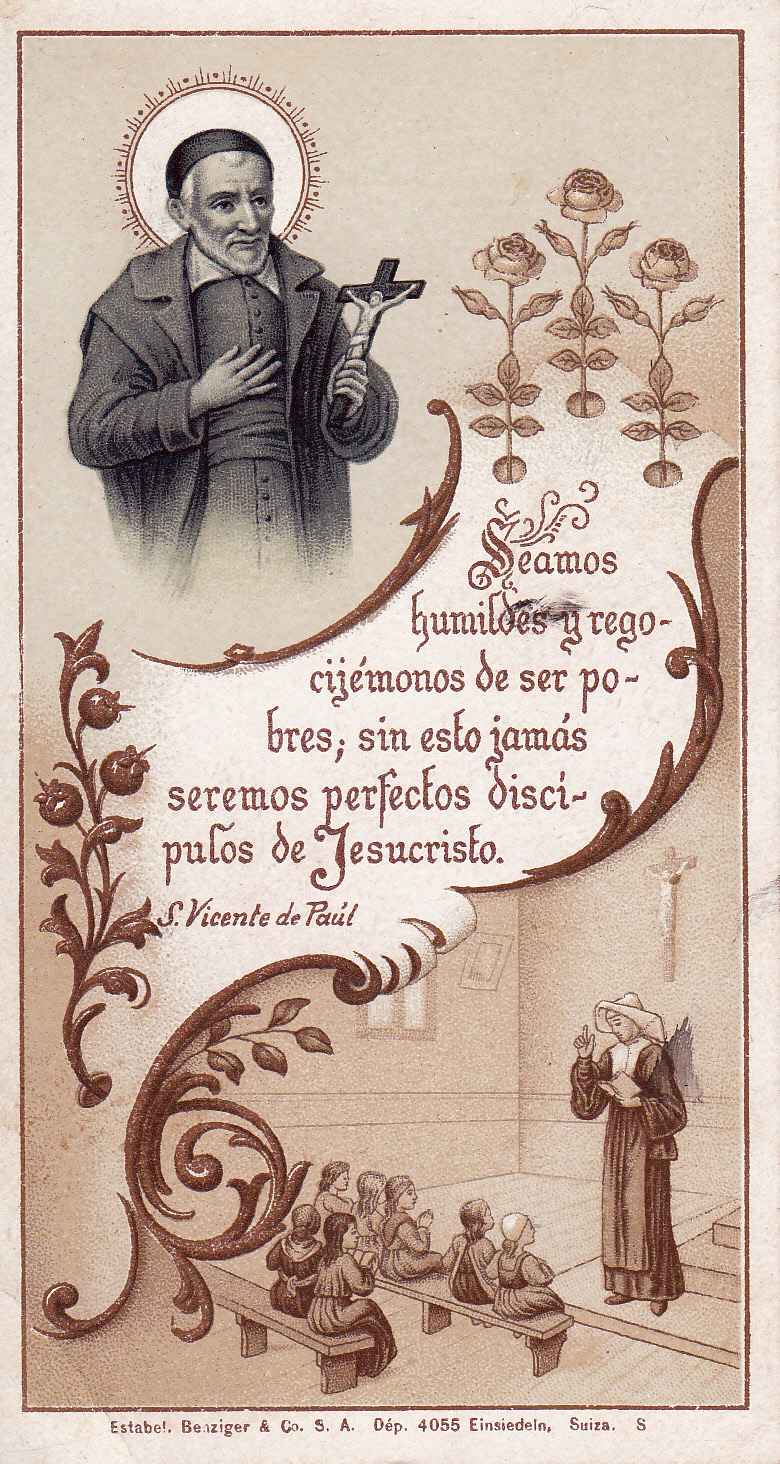 Seamos
humildes y rego-
cijémonos de ser po-
bres; sin esto jamás
seremos perfectos discí-
pulos de Jesucristo.
S. Vicente de Paúl
Estabel. Benziger & Co. S. A. Dép. 4055 Einsiedeln, Suiza. S